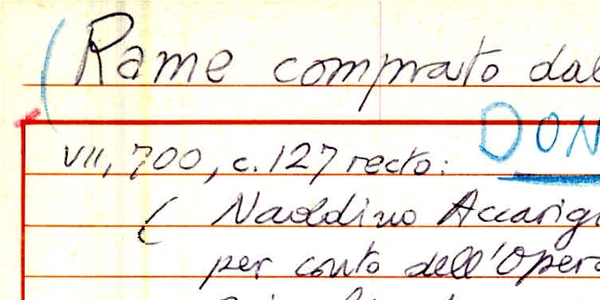 ( Rame comprato dal
DON
VII, 700, c. 127 recto:
( Naddino Accarig
per conto dell'Opera